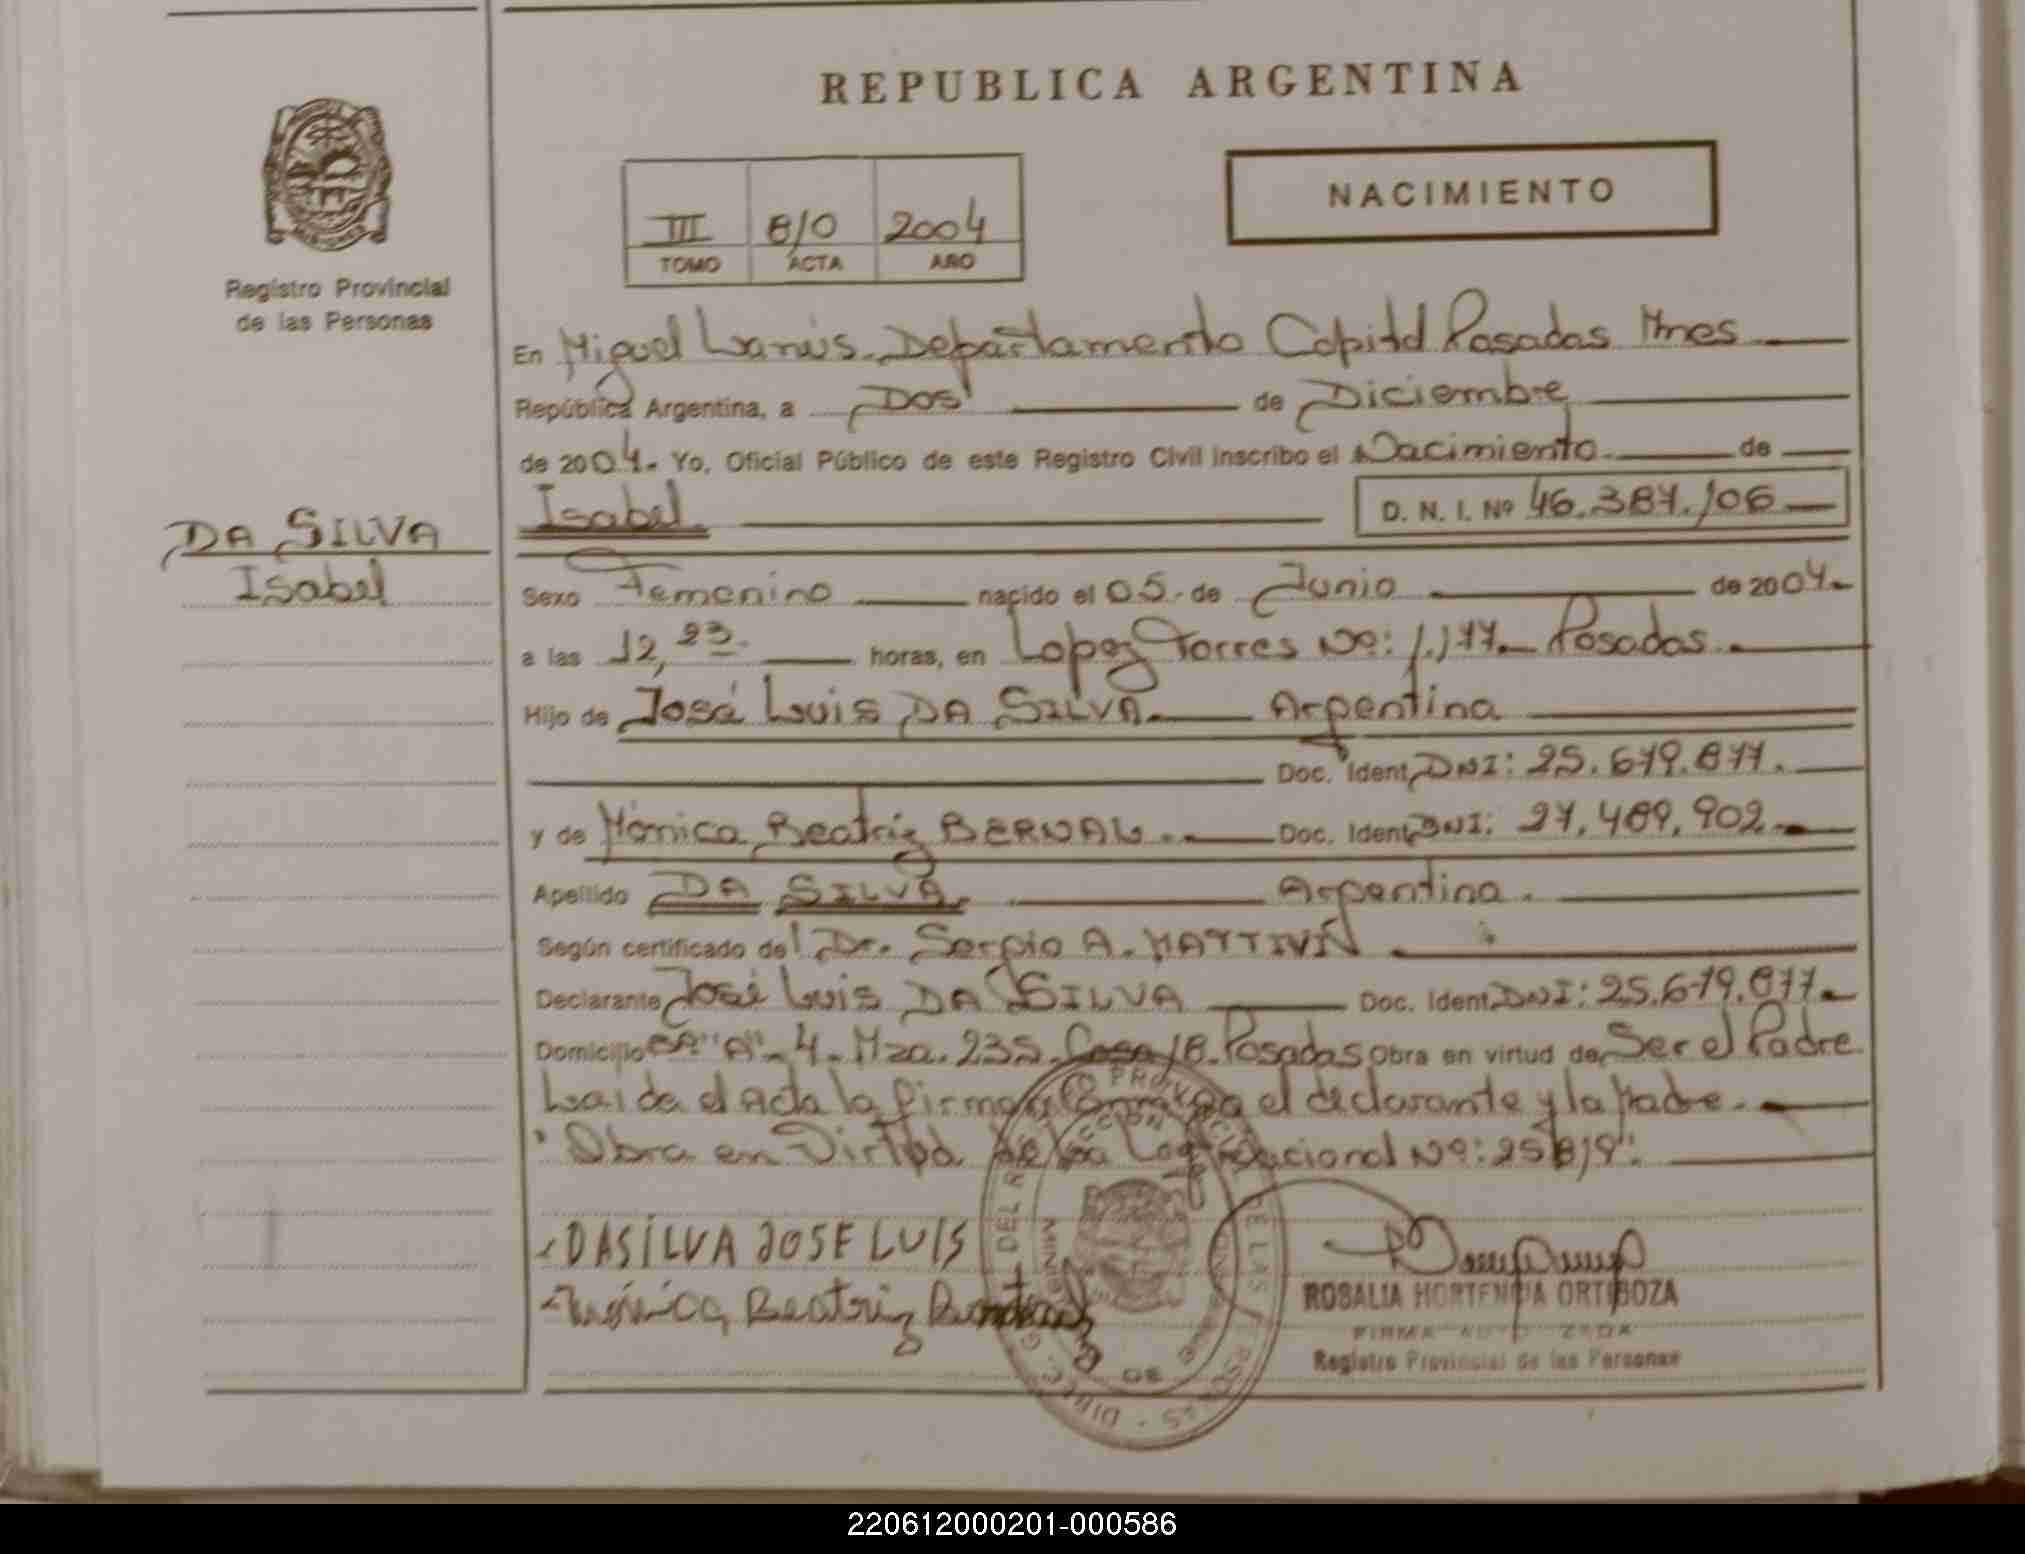 REPUBLICA ARGENTINA
NACIMIENTO
III 810 2004
TOMO ACTA AÑO
Registro Provincial
de las Personas
En Miguel Lanus. Departamento Capital Posadas Mnes
República Argentina, a Dos de Diciembre
de 2004. Yo, Oficial Público de este Registro Civil inscribo el Nacimiento de
DA SILVA
Isabel
Isabel D. N. I. Nº 46.387.106
Sexo Femenino nacido el 05. de Junio de 2004.
a las 12,23. horas, en Lopez Torres Nº: 1.177. Posadas.
Hijo de José Luis DA SILVA. Argentina
Doc. Ident. DNI: 25.679.877.
y de Mónica Beatriz BERNAL. Doc. Ident. DNI: 27.489.902.
Apellido DA SILVA. Argentina.
Según certificado del Dr. Sergio A.
Declarante José Luis DA SILVA Doc. Ident. DNI: 25.679.877.
Domicilio "A". 4. Mza. 235. Casa 18. Posadas Obra en virtud de Ser el Padre
Leida el Acta la firma el declarante y la Madre.
Obra en Virtud de la Ley Nacional Nº:
DASILVA JOSE LUIS
Mónica Beatriz
ROSALIA HORTENCIA
FIRMA
Registro Provincial de las Personas
220612000201-000586